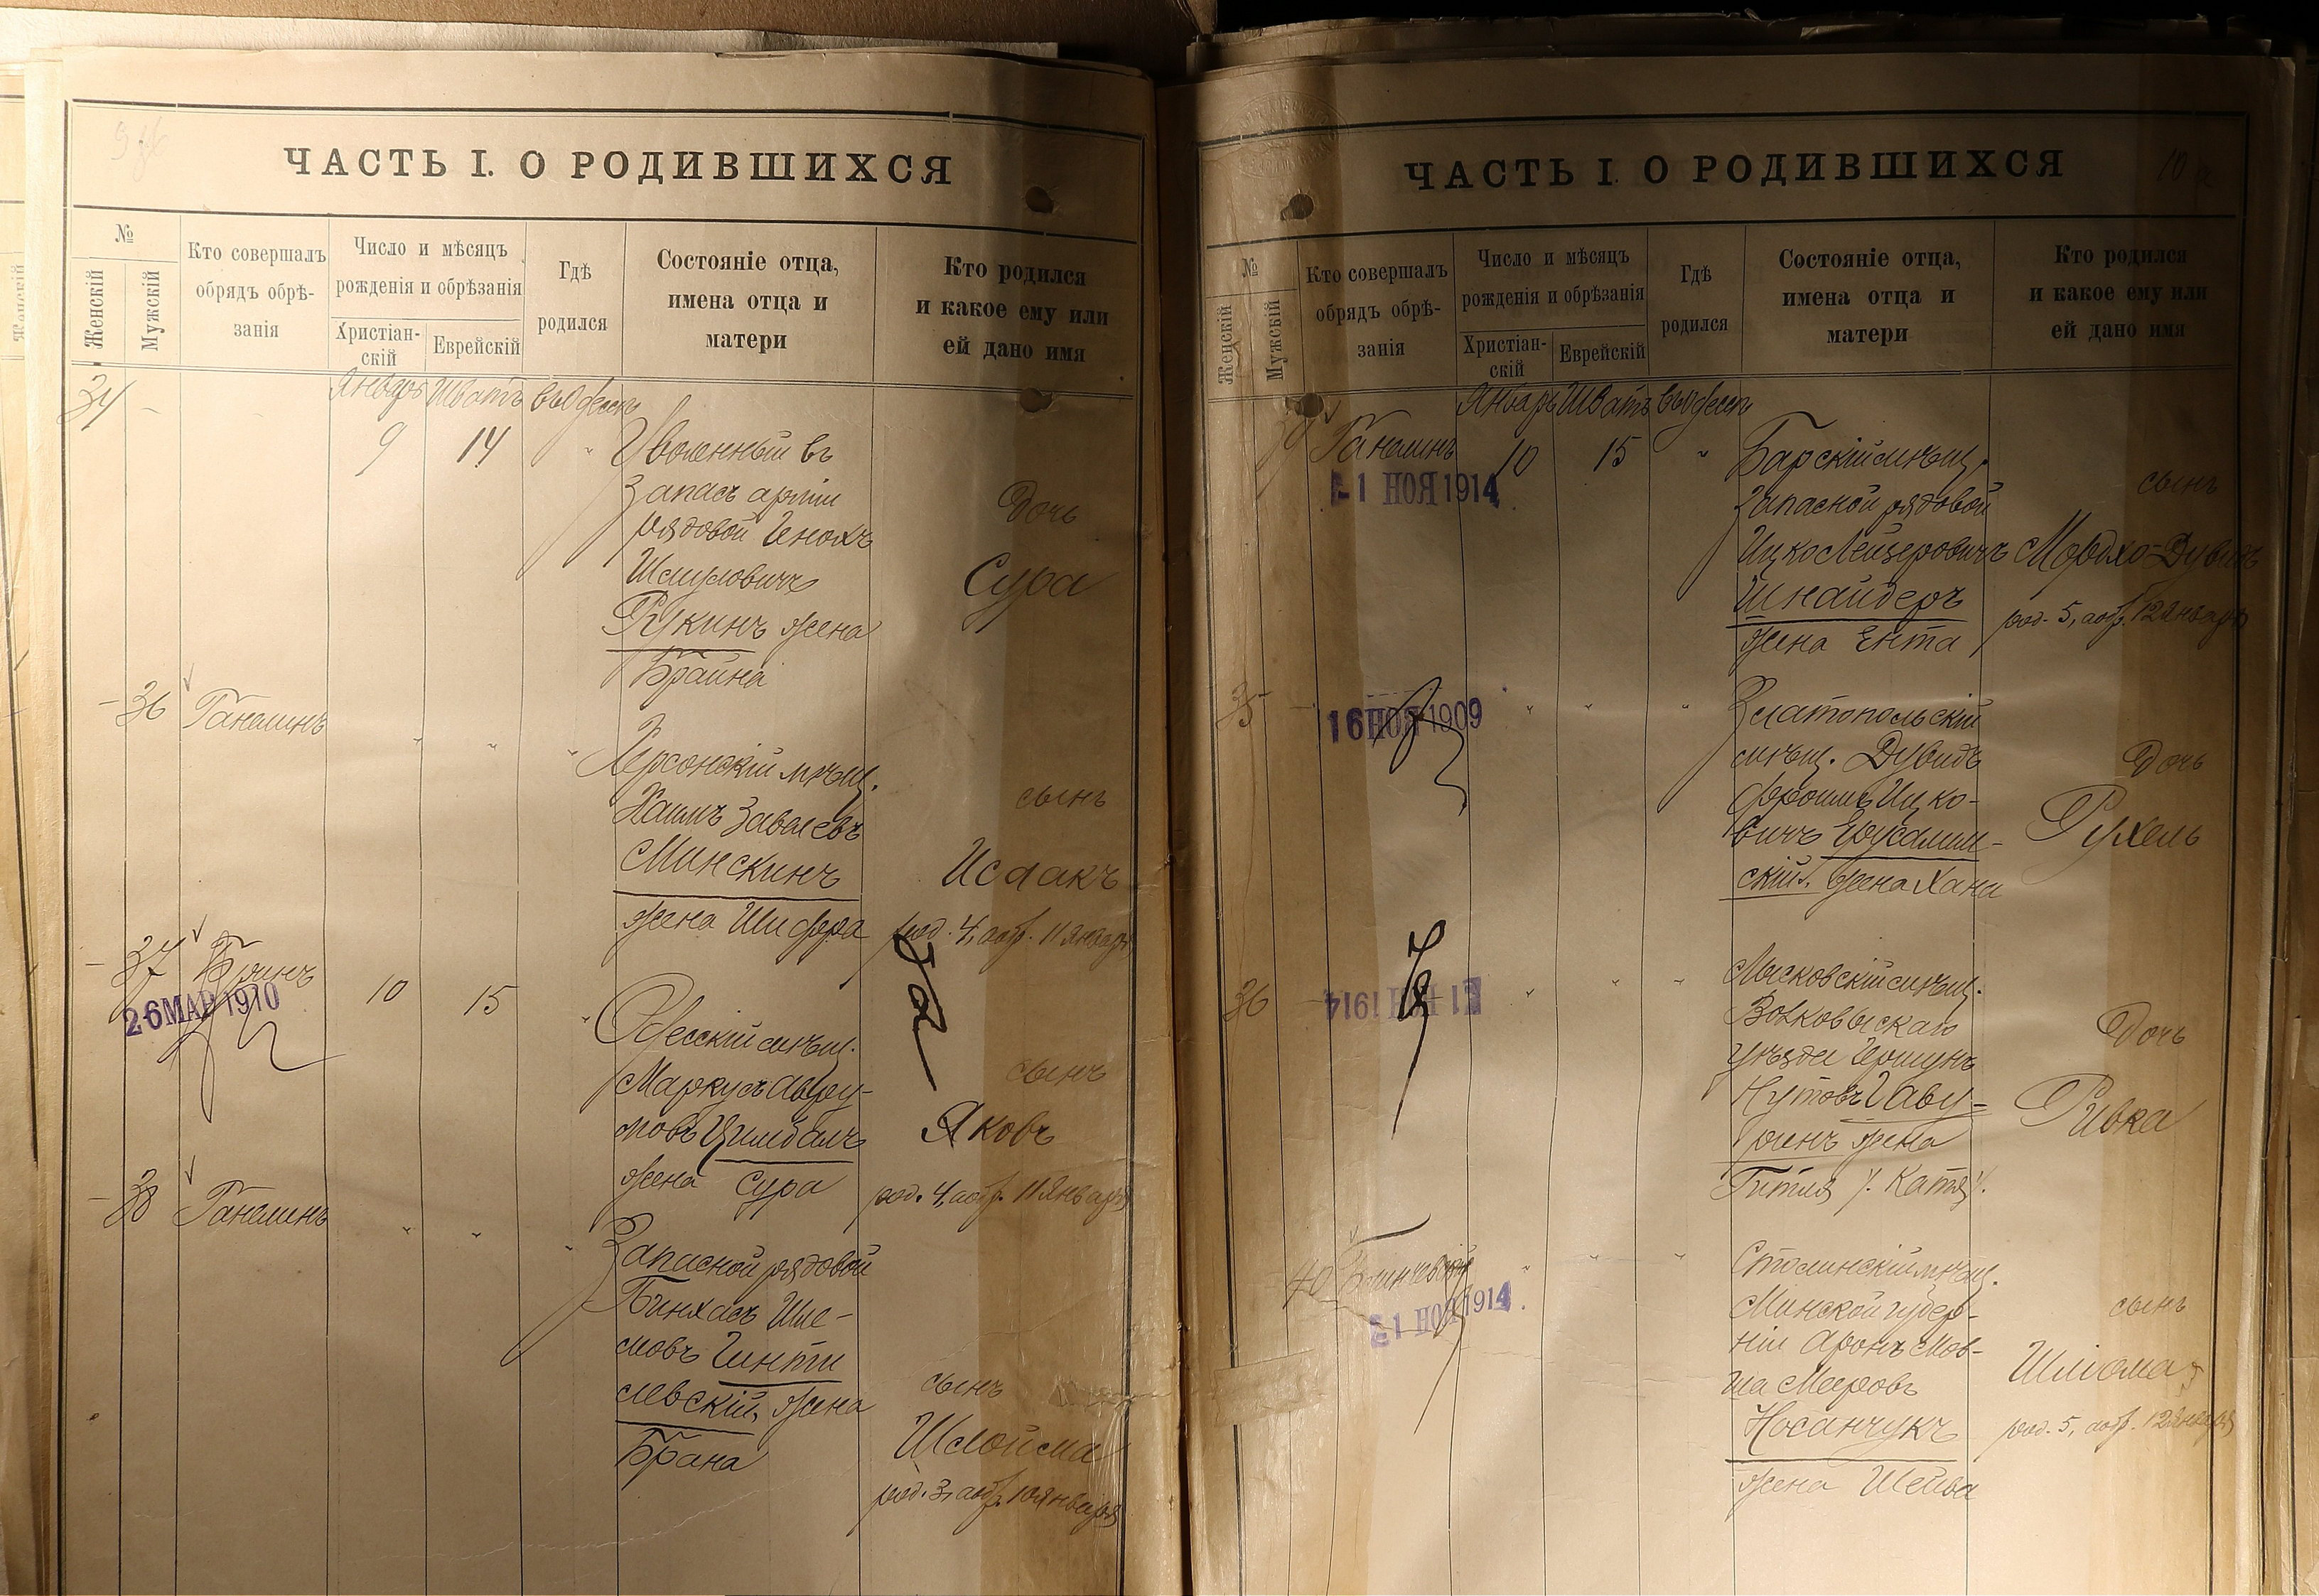 ЧАСТЬ I. О РОДИВШИХСЯ
№
Женскій
Мужскій
Кто совершалъ
обрядъ обрѣ-
занія
Число и мѣсяцъ
рожденія и обрѣзанія
Христіан-
скій
Еврейскій
Гдѣ
родился
Состояніе отца,
имена отца и
матери
Кто родился
и какое ему или
ей дано имя
34 - Январь Шватъ въ Одессѣ
9 14 " Уволенный въ
запасъ арміи
рядовой Генохъ
Шмуловичъ
Рукинъ жена
Брайна
Дочь
Сура
- 36 Ганелинъ " " " Херсонскій мѣщ.
Хаимъ Завелевъ
Минскинъ
жена Шифра
сынъ
Исаакъ
род. 4, аобр. 11 января
- 37 Гринъ 10 15 " Одесскій мѣщ.
26 МАР 1910
Маркусъ Авру-
мовъ Цимбалъ
жена Сура
сынъ
Яковъ
род. 4, аобр. 11 января
- 38 Ганелинъ " " " Запасной рядовой
Пинхасъ Шле-
мовъ Гинти
левскій, жена
Брана
сынъ
Шлойма
род. 3, аобр. 10 января
ЧАСТЬ I. О РОДИВШИХСЯ
10
№
Женскій
Мужскій
Кто совершалъ
обрядъ обрѣ-
занія
Число и мѣсяцъ
рожденія и обрѣзанія
Христіан-
скій
Еврейскій
Гдѣ
родился
Состояніе отца,
имена отца и
матери
Кто родился
и какое ему или
ей дано имя
Январь Шватъ въ Одессѣ
39 Ганелинъ 10 15 " Барскій мѣщ.
21 НОЯ 1914
запасной рядовой
Ицко Лейзеровичъ
Шнайдеръ
жена Ента
сынъ
Мордхо-Дувидъ
род. 5, аобр. 12 января
35 - " " " Златопольскій
16 НОЯ 1909
мѣщ. Дувидъ
Фроимъ Ицко-
вичъ Іерусалим-
скій, жена Хана
Дочь
Рухель
36 - " " " Мысковскій мѣщ.
21 НОЯ 1914
Волковыскаго
уѣзда Гершунъ
Нутовъ Гаву-
ринъ жена
Гитля /. Катя /.
Дочь
Ривка
40 " " " Столинскій мѣщ.
21 НОЯ 1914
Минской губер-
ніи Аронъ Мов-
ша Меровъ
Носанчукъ
жена Шейва
сынъ
Шліома
род. 5, аобр. 12 января